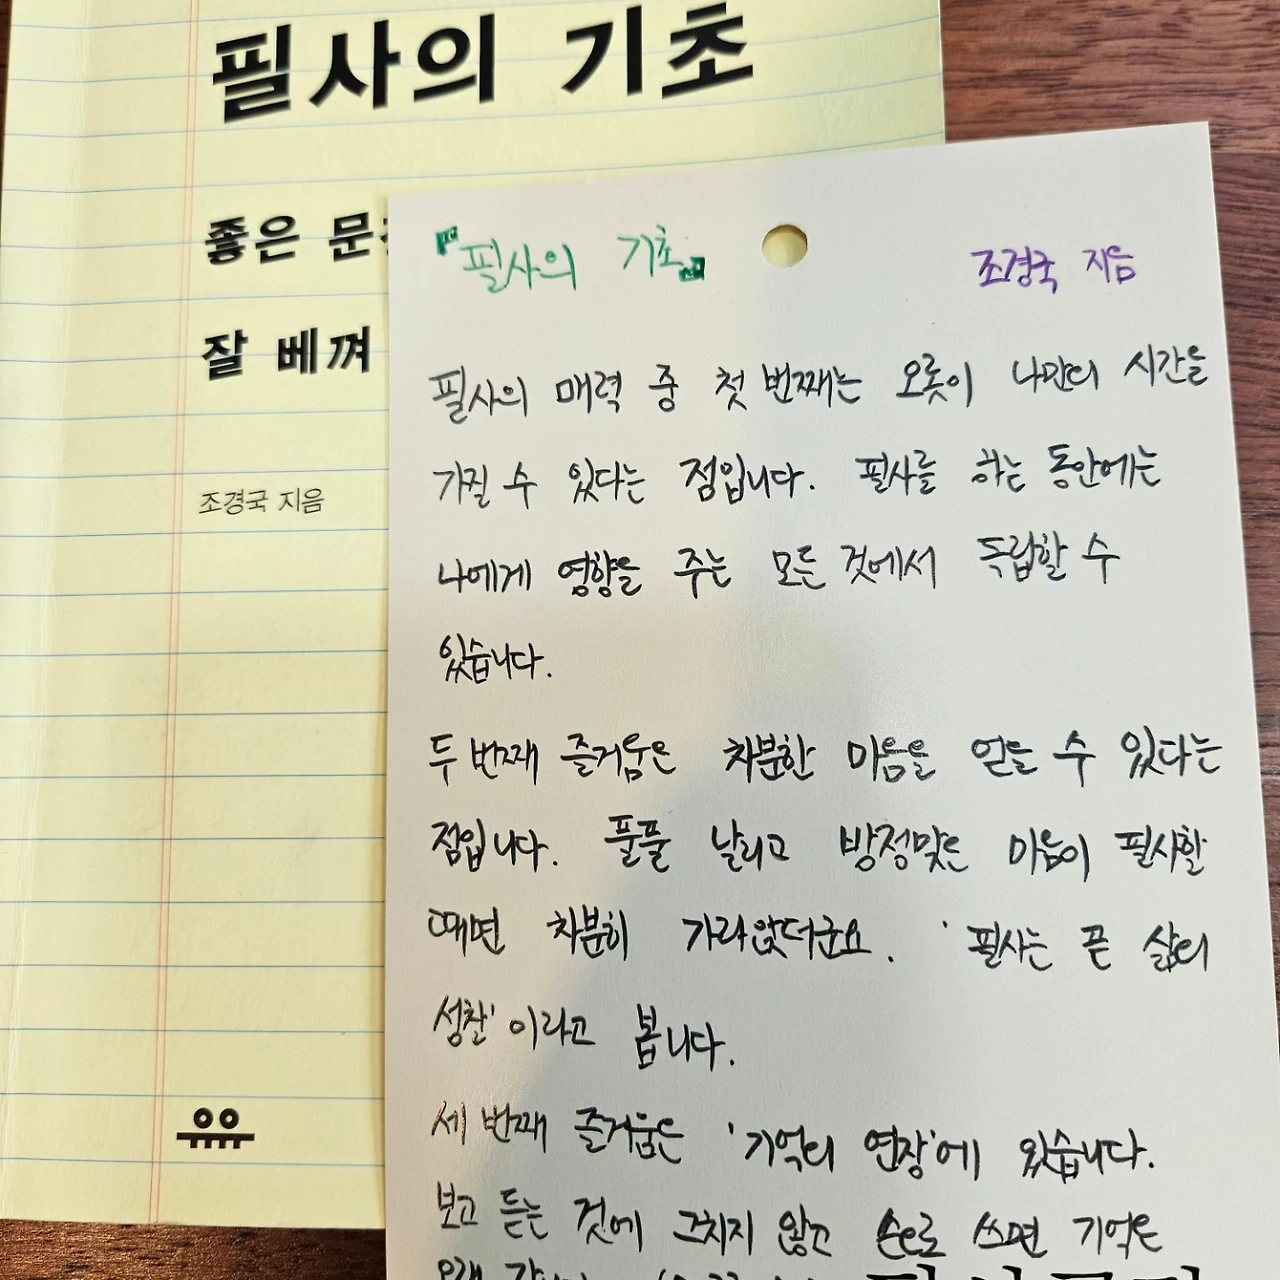 필사의 기초
좋은
잘 베껴
조경국 지음
『필사의 기초』 조경국 지음
필사의 매력 중 첫 번째는 오롯이 나만의 시간을
가질 수 있다는 점입니다. 필사를 하는 동안에는
나에게 영향을 주는 모든 것에서 독립할 수
있습니다.
두 번째 즐거움은 차분한 마음을 얻을 수 있다는
점입니다. 풀풀 날리고 방정맞은 마음이 필사할
때면 차분히 가라앉더군요. '필사는 곧 삶의
성찰'이라고 봅니다.
세 번째 즐거움은 '기억의 연장'에 있습니다.
보고 듣는 것에 그치지 않고 손으로 쓰면 기억은
오래